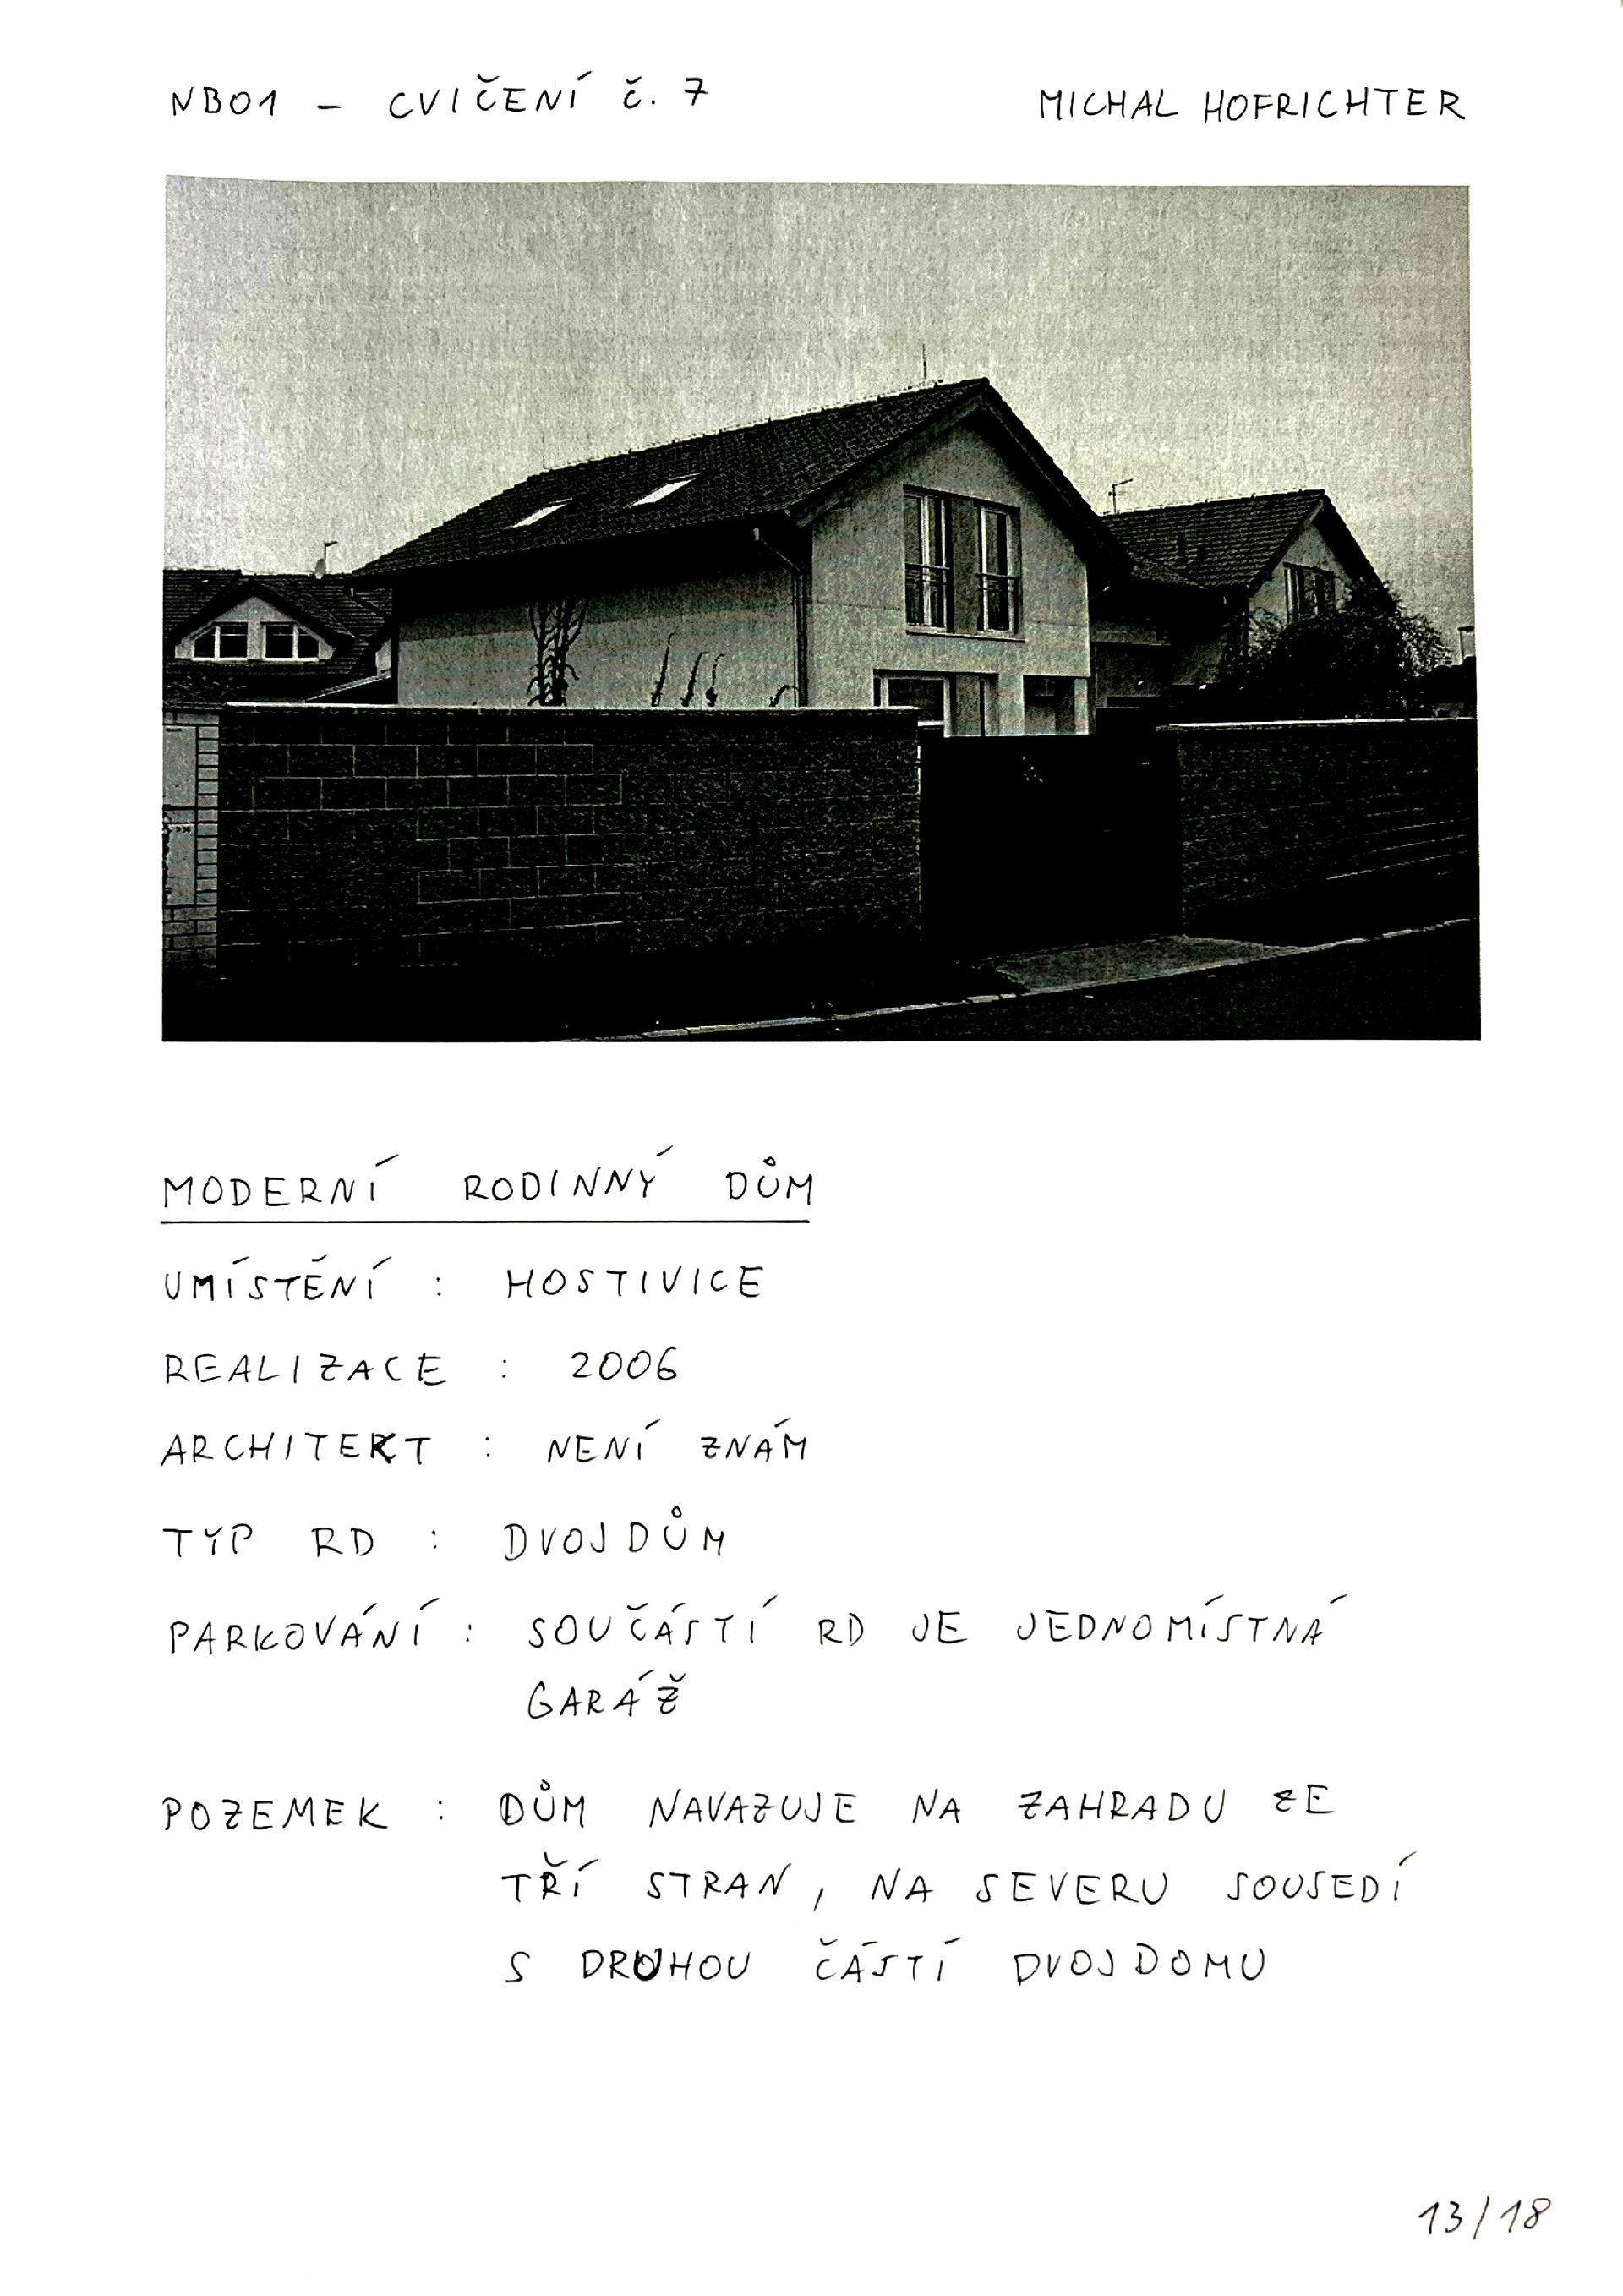 NB01 – CVIČENÍ Č. 7
MICHAL HOFRICHTER
MODERNÍ RODINNÝ DŮM
UMÍSTĚNÍ : HOSTIVICE
REALIZACE : 2006
ARCHITEKT : NENÍ ZNÁM
TYP RD : DVOJDŮM
PARKOVÁNÍ : SOUČÁSTÍ RD JE JEDNOMÍSTNÁ
GARÁŽ
POZEMEK : DŮM NAVAZUJE NA ZAHRADU ZE
TŘÍ STRAN, NA SEVERU SOUSEDÍ
S DRUHOU ČÁSTÍ DVOJDOMU
13/18